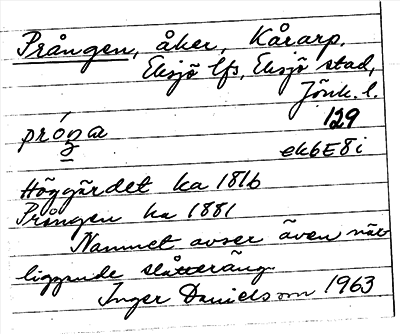 Prången, åker, Kårarp,
Eksjö lfs, Eksjö stad,
Jönk. l.
129
próŋa
ek6E8i
Höggärdet ha 1816
Prången ha 1881
Namnet avser även när-
liggande slåtteräng.
Inger Danielsson 1963